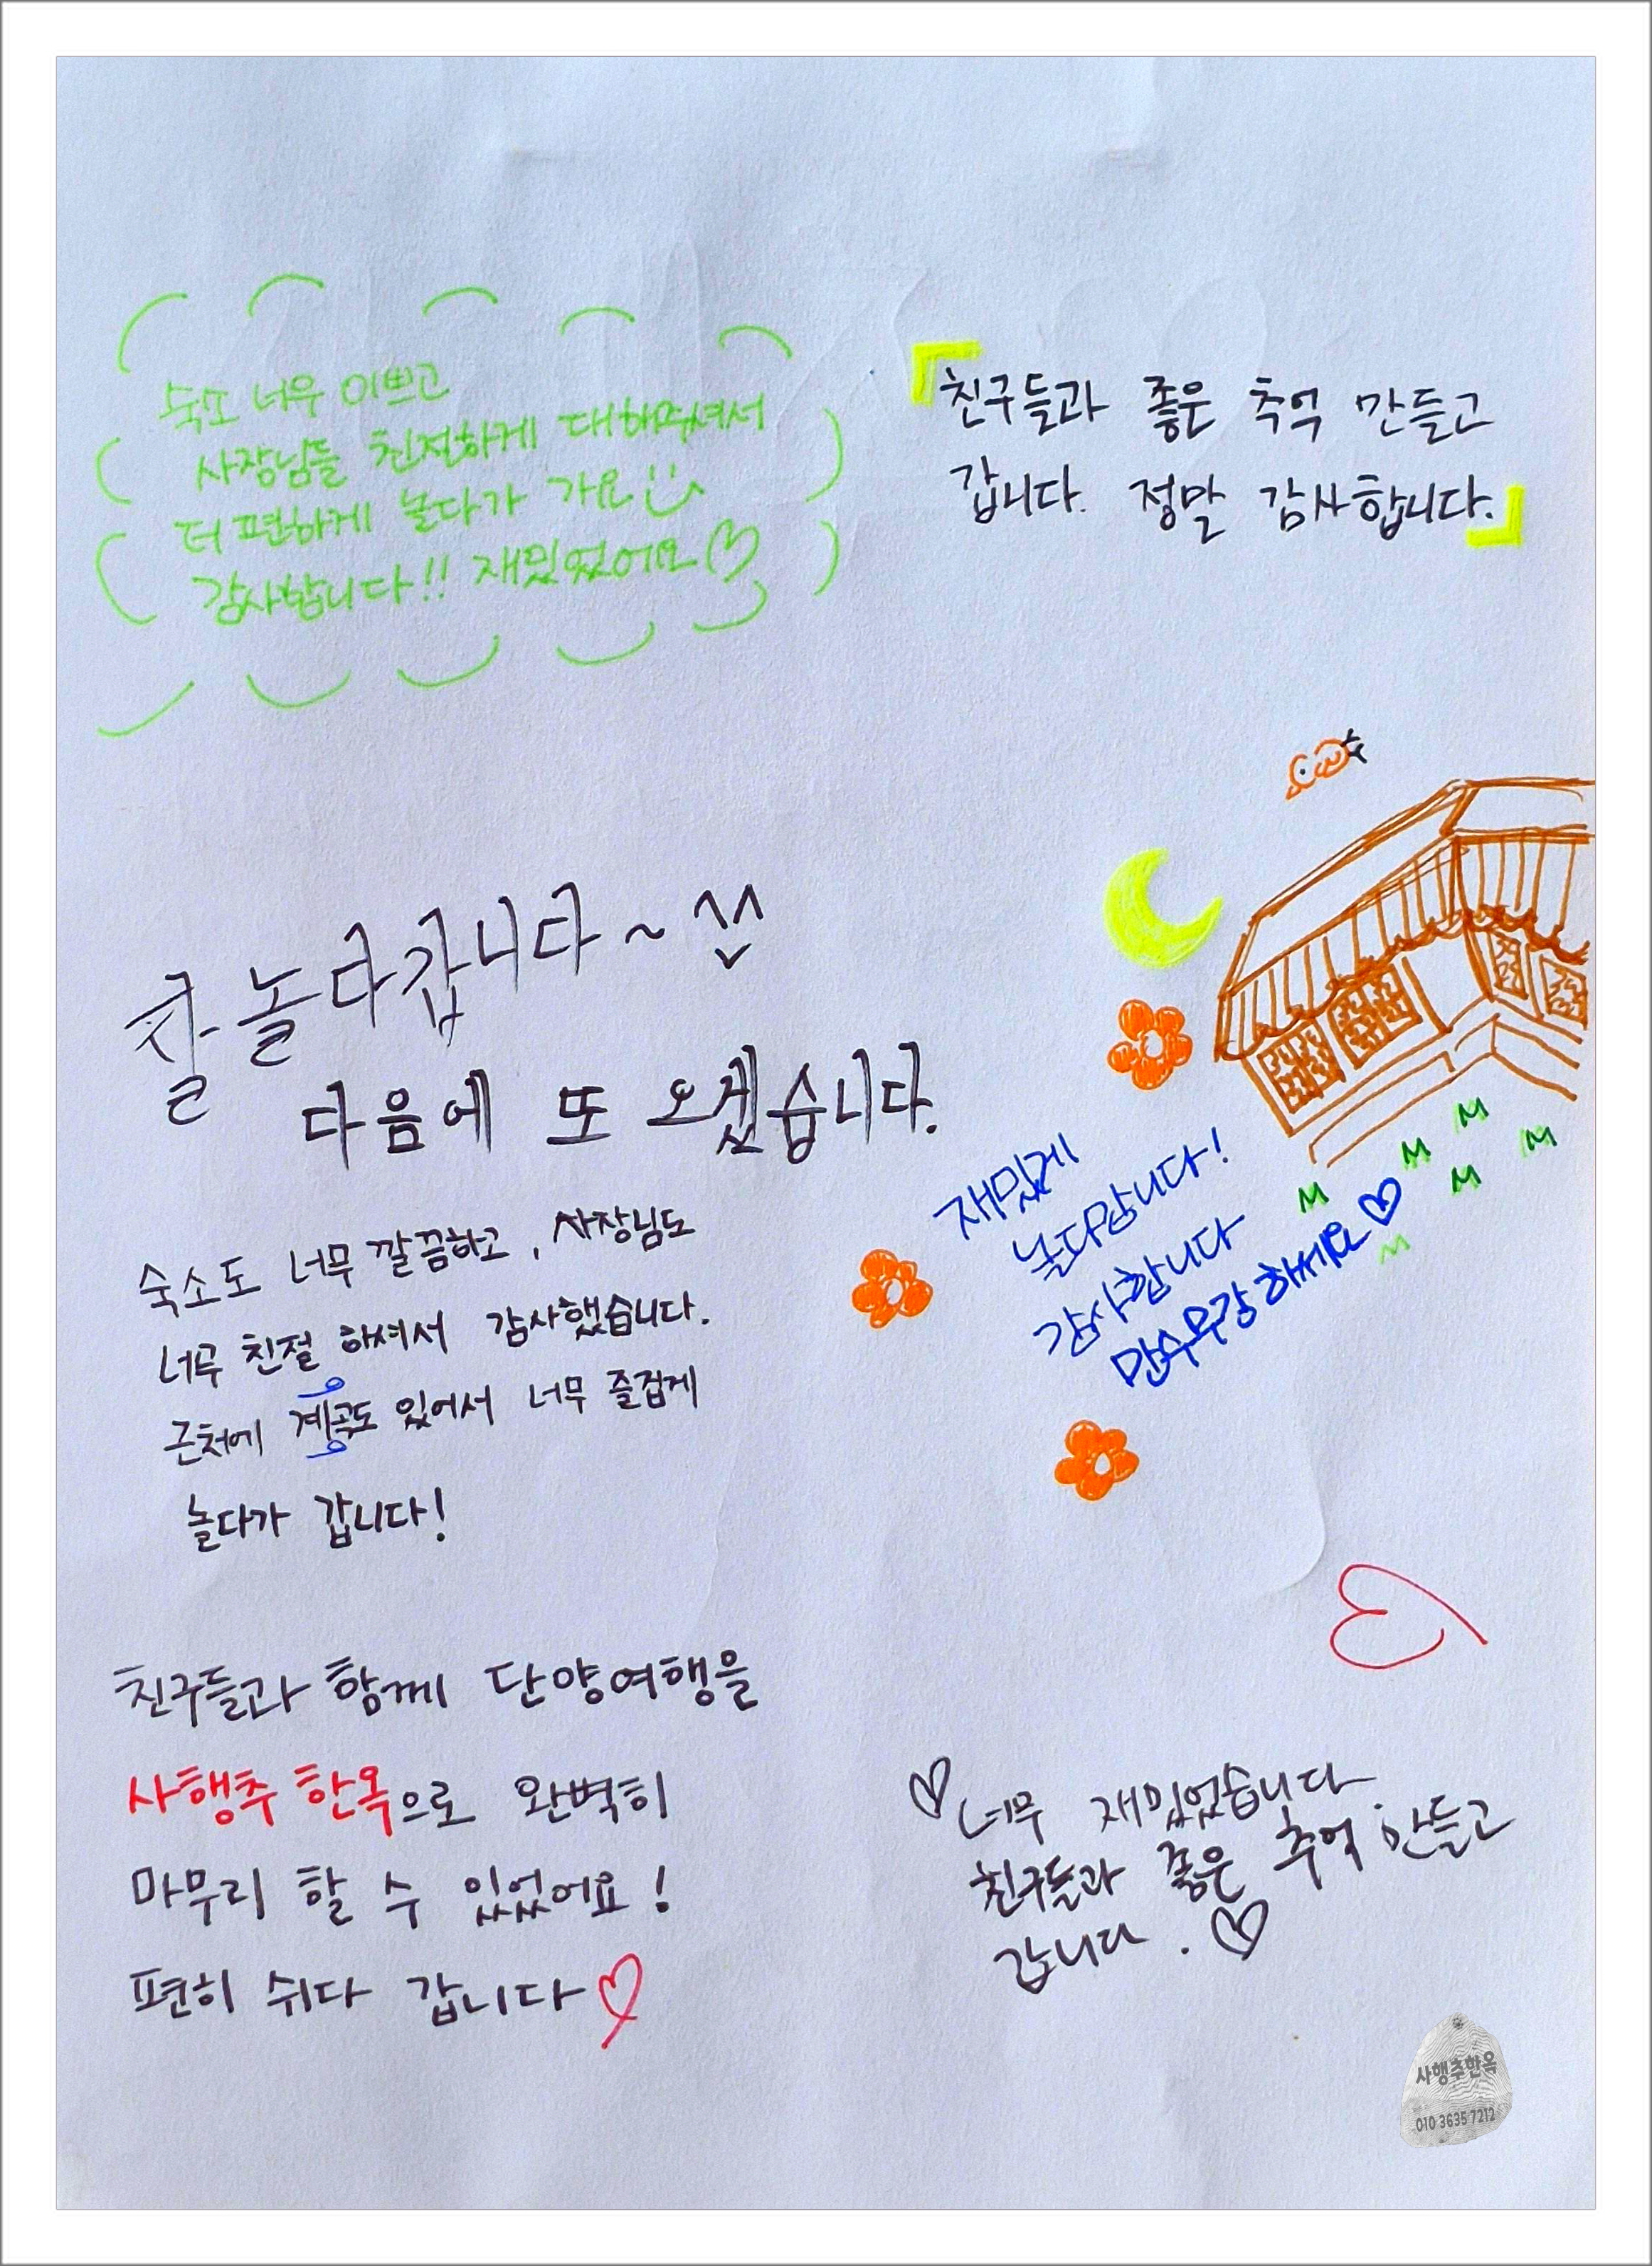 숙소 너무 이쁘고
사장님들 친절하게 대해주셔서
더 편하게 놀다가 가요
감사합니다!! 재밌었어요♡
『친구들과 좋은 추억 만들고
갑니다. 정말 감사합니다.』
잘 놀다갑니다~^^
다음에 또 오겠습니다.
숙소도 너무 깔끔하고, 사장님도
너무 친절 하셔서 감사했습니다.
근처에 계곡도 있어서 너무 즐겁게
놀다가 갑니다!
재밌게
놀다갑니다!
감사합니다
만수무강 하세요♡
친구들과 함께 단양여행을
사행추 한옥으로 완벽히
마무리 할 수 있었어요!
편히 쉬다 갑니다♡
♡너무 재밌었습니다.
친구들과 좋은 추억 만들고
갑니다.♡
사행추한옥
010 3635 7212